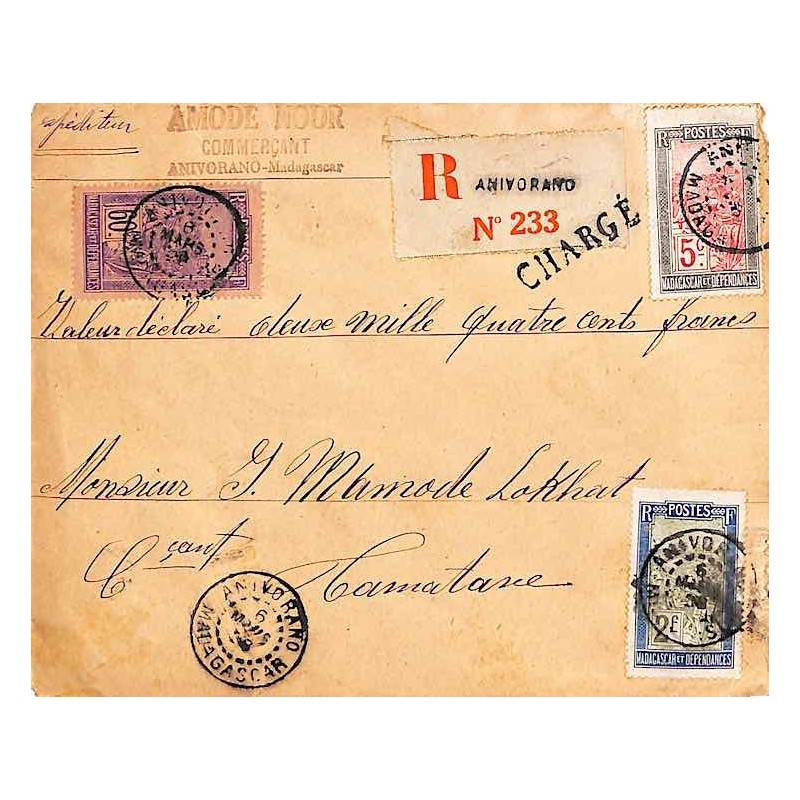 expéditeur
AMODE NOOR
COMMERÇANT
ANIVORANO-Madagascar
R
ANIVORANO
N° 233
CHARGÉ
R POSTES F
5c.
MADAGASCAR ET DÉPENDANCES
ANIVORANO
6
MARS
Valeur déclaré deuse mille quatre cents francs
Monsieur I. Mamode Lokhat
Cçant Tamatave
R POSTES F
2f
MADAGASCAR ET DÉPENDANCES
ANIVORANO
6
MARS
ANIVORANO
6
MARS
MADAGASCAR